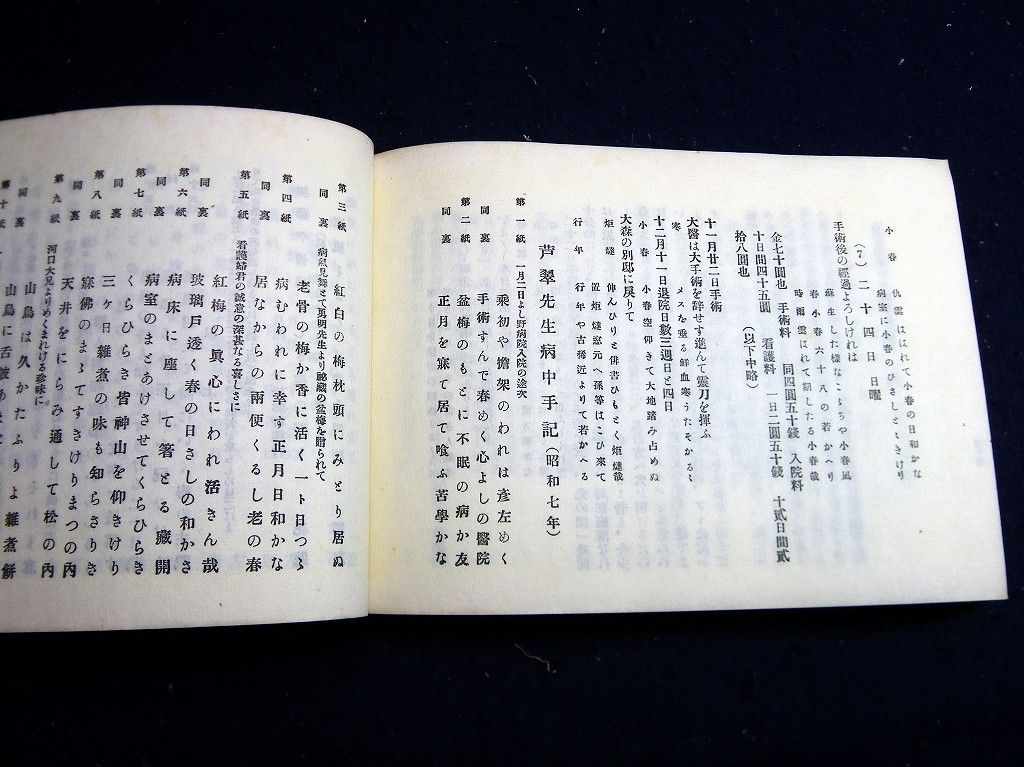 小春　仇雲ははれて小春の日和かな
病室に小春のひさしとゞきけり
(7)二十四日　日曜
手術後の經過よろしければ
蘇生した樣なこゝちや小春凪
春小春六十八の若かへり
時雨雲はれて期したる小春哉
金七十圓也　手術料　同四圓五十錢　入院料
十日間四十五圓　看護料　一日二圓五十錢　十貳日間貳
拾八圓也　（以下中略）
十一月廿二日手術
大醫は大手術を辞せす進んて靈刀を揮ふ
寒　メスを垂る鮮血寒うたそかるゝ
十二月十一日退院日數三週日と四日
小春　小春空仰きて大地踏み占めぬ
大森の別邸に戻りて
炬燵　伸んひりと俳書ひもとく炬燵哉
置炬燵窓元へ孫等はこひ來て
行年　行年や古稀近よりて若かへる
芦翠先生病中手記（昭和七年）
第一紙　一月二日よし野病院入院の途次
乘初や擔架のわれは彦左めく
同裏　手術すんで春めく心よしの醫院
第二紙　盆梅のもとに不眠の病か友
同裏　正月を寐て居て喰ふ苦學かな
第三紙　紅白の梅枕頭にみとり居ぬ
同裏　病氣見舞さて勇明先生より祕藏の盆梅を贈られて
老骨の梅か香に活く一ト日つゝ
第四紙　病むわれに幸す正月日和かな
同裏　居なからの兩便くるし老の春
第五紙　看護婦君の誠意の深甚なる喜しさに
紅梅の眞心にわれ活きん哉
同裏　玻璃戸透く春の日さしの和かさ
第六紙　病床に座して箸とる藏開
同裏　病室のまとあけさせてくらひらき
第七紙　くらひらき皆神山を仰きけり
同裏　三ヶ日雜煮の味も知らさりき
第八紙　寐佛のまゝてすきけりまつの內
同裏　天井をにらみ通して松の內
第九紙　河口大兄よりめくまれける珍味に
山鳥は久かたふりよ雜煮餅
同裏　山鳥に舌皷
第十紙